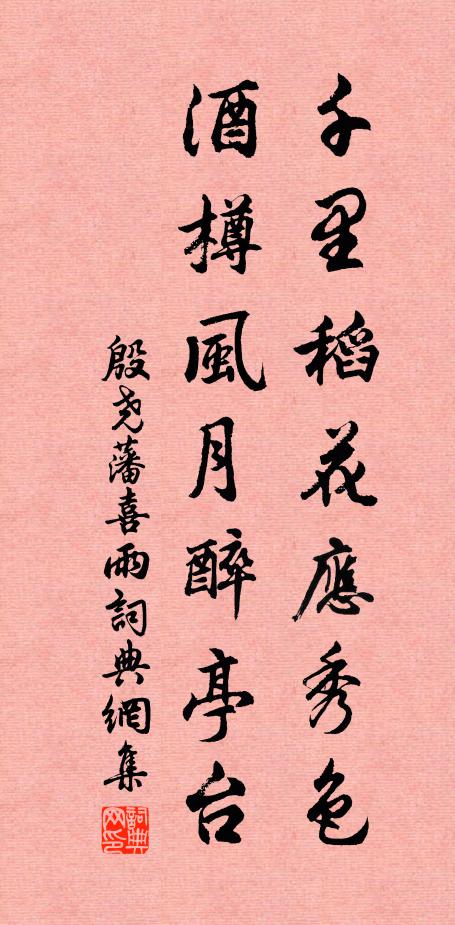 千里稻花應秀色
酒樽風月醉亭台
殷尧藩喜雨詞典網集
詞典網印